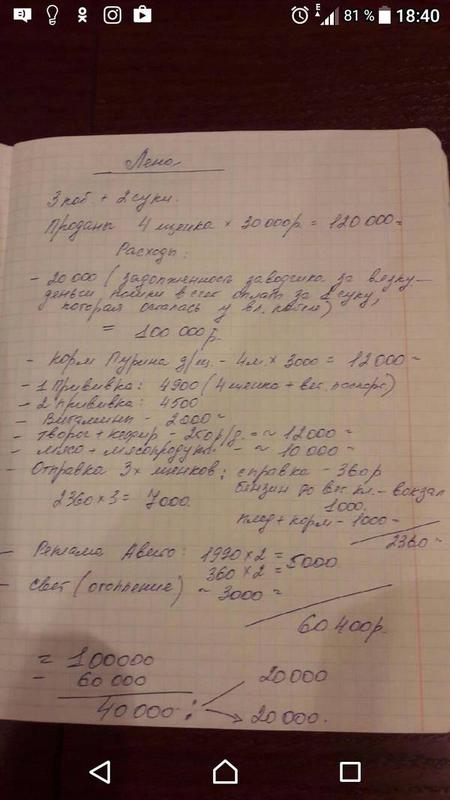 81 % 18:40
Лена
3 коб. + 2 суки.
Проданы 4 щенка × 30 000 р. = 120 000=
Расходы:
- 20 000 (задолженность заводчика за вязку -
деньги пошли в счёт оплаты за 1 суку,
которая осталась у вл. кобеля)
= 100 000 р.
- Корм Пурина д/щ. - 4 м. × 3000 = 12 000 =
- 1 Прививка: 4900 (4 щенка + вет. паспорт)
- 2 прививка: 4500
- Витамины - 2000 =
- Творог + кефир - 250 р/д. = ~ 12 000 =
- мясо + мясопродукты - ~ 10 000 =
- Отправка 3х щенков: справка - 360 р
бензин до вет. кл. - вокзал
1000.
2360 × 3 = 7000.
+ корм - 1000 -
2360 =
- Реклама Авито: 1990 × 2 = 5000
360 × 2 =
- Свет (отопление) ~ 3000 =
60 400 р.
= 100000
- 60 000
40 000 :
20 000
20 000.